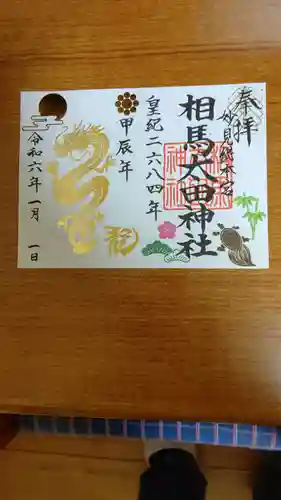 奉拝
妙見総本宮
相馬太田神社
皇紀二六八四年
甲辰年
令和六年 一月 一日